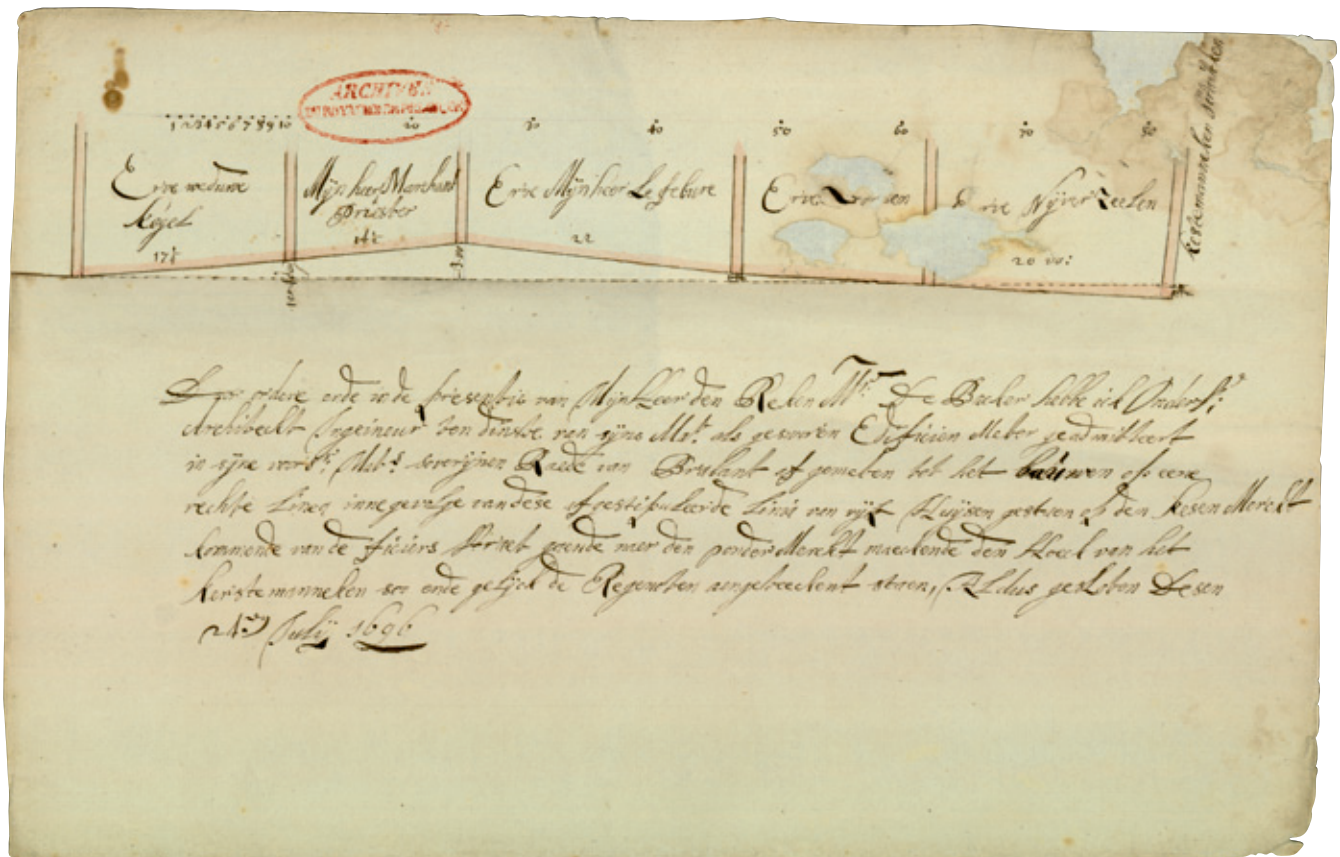 ARCHIVES
1 2 3 4 5 6 7 8 9 10 20 30 40 50 60 70 80
Erve weduwe
Keyel
Mijn heer Marchant
Priester
Erve Mijn heer Le Febure
Erve
Erve Nijverseelen
17½
16½
22
20 vo:
ende in de presentie van Mijn Heer den Reken Mr. De Becker hebbe ick Onders:
Architeckt Ingeineur ten dinste van syne Mat. als gesworen Edificien Meter geadmitteert
in syne voors. Mats. soverynen Raede van Brabant af gemeten tot het bauwen op eene
rechte Linea innegevolge van dese afgestipuleerde Linie van vijf Huysen gestaen op den Kesen Merckt
kommende van de straet gaende naer den ponder Merckt maeckende den Hoeck van het
Kerstemanneken soo ende gelyck de Regenoten aengeteeckent staen, Aldus gesloten Desen
24en July 1696